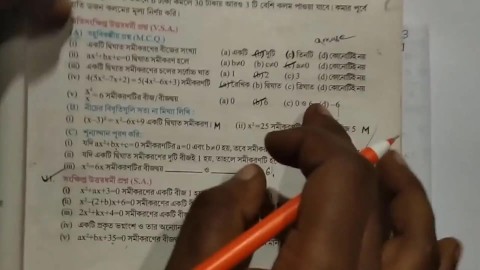 অতিসংক্ষিপ্ত উত্তরধর্মী প্রশ্ন (V.S.A.)
(A) বহুবিকল্পীয় প্রশ্ন (M.C.Q.) :
(i) একটি দ্বিঘাত সমীকরণের বীজের সংখ্যা (a) একটি (b) দুটি (c) তিনটি (d) কোনোটিই নয়
(ii) ax²+bx+c=0 দ্বিঘাত সমীকরণ হলে (a) b≠0 (b) c≠0 (c) a≠0 (d) কোনোটিই নয়
(iii) একটি দ্বিঘাত সমীকরণের চলের সর্বোচ্চ ঘাত (a) 1 (b) 2 (c) 3 (d) কোনোটিই নয়
(iv) 4(5x²-7x+2)=5(4x²-6x+3) সমীকরণটি (a) রৈখিক (b) দ্বিঘাত (c) ত্রিঘাত (d) কোনোটিই নয়
(v) x²/x=6 সমীকরণটির বীজ/বীজদ্বয় (a) 0 (b) 6 (c) 0 ও (d) -6
(B) নীচের বিবৃতিগুলি সত্য না মিথ্যা লিখি :
(i) (x-3)²=x²-6x+9 একটি দ্বিঘাত সমীকরণ। M (ii) x²=25 5 M
(C) শূন্যস্থান পূরণ করি :
(i) যদি ax²+bx+c=0 সমীকরণটির a=0 এবং b≠0 হয়, তবে
(ii) যদি একটি দ্বিঘাত সমীকরণের দুটি বীজই 1 হয়, তাহলে সমীকরণটি
(iii) x²=6x সমীকরণটির বীজদ্বয় ও 6,
সংক্ষিপ্ত উত্তরধর্মী প্রশ্ন (S.A.)
(i) x²+ax+3=0 সমীকরণের একটি বীজ 1
(ii) x²-(2+b)x+6=0 সমীকরণের একটি
(iii) 2x²+kx+4=0 সমীকরণের একটি
(iv) একটি প্রকৃত ভগ্নাংশ ও তার
(v) ax²+bx+35=0 সমীকরণের